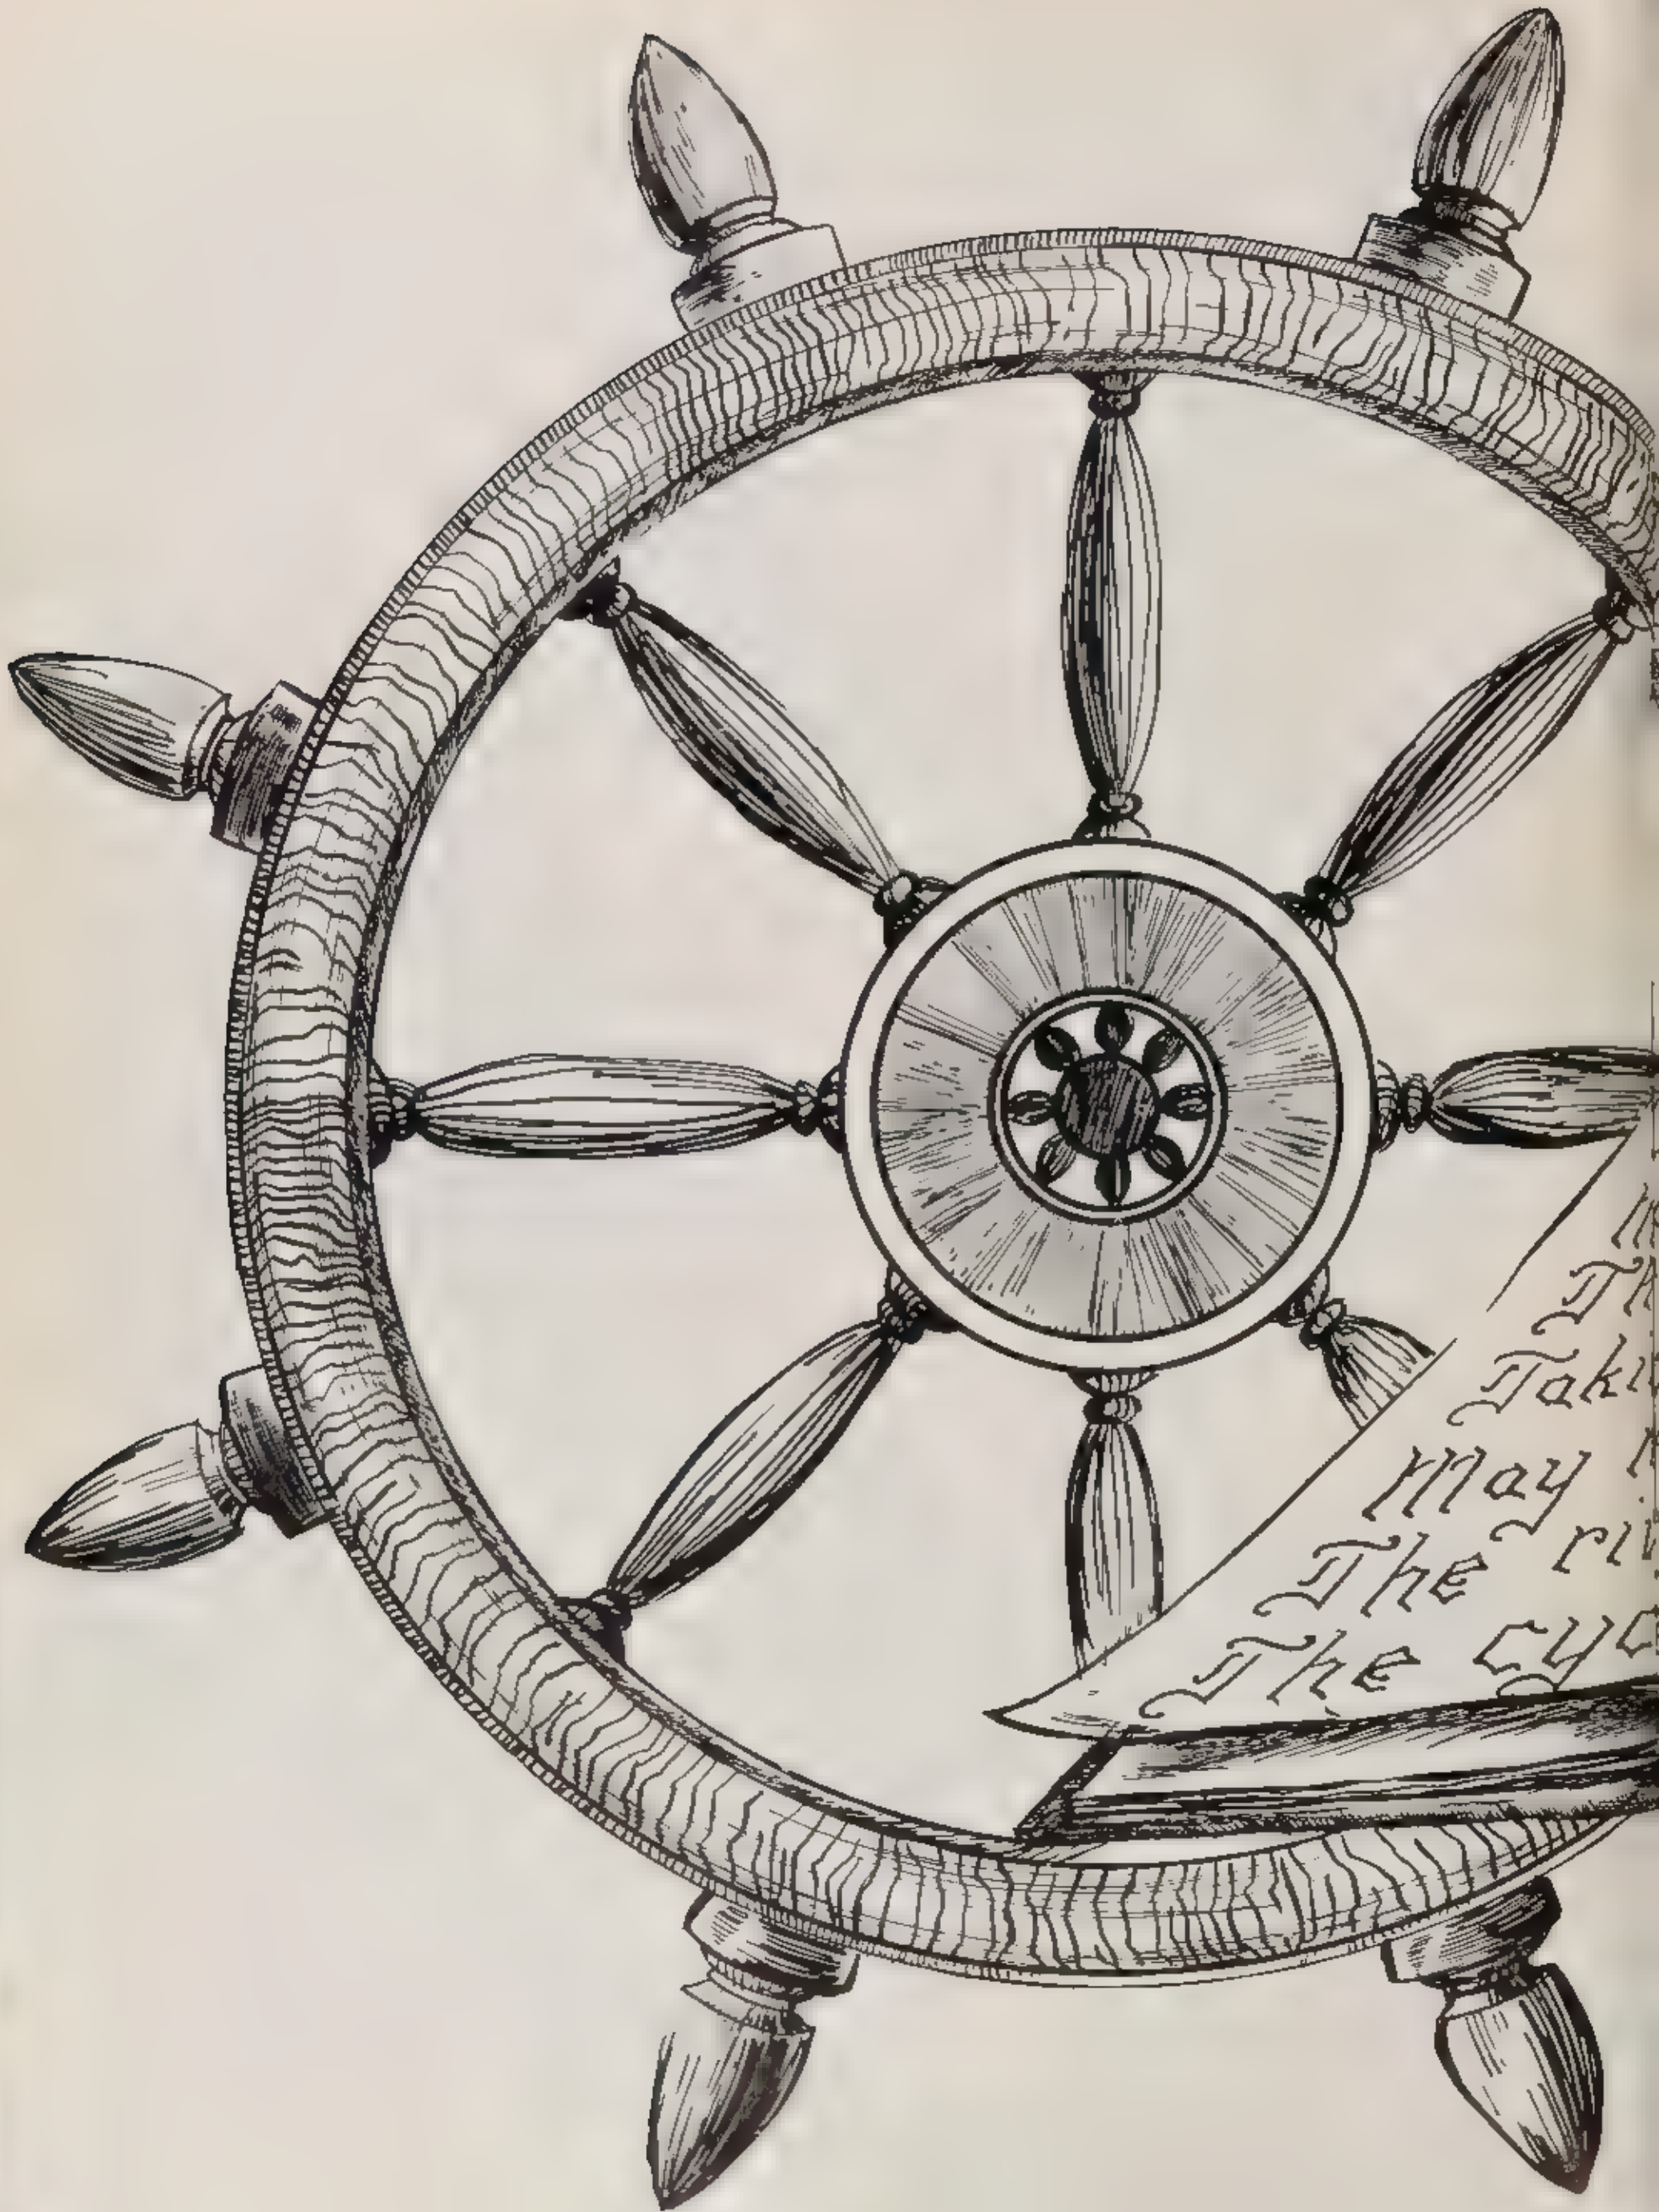 Th
Taki
May
The ri
The cyc